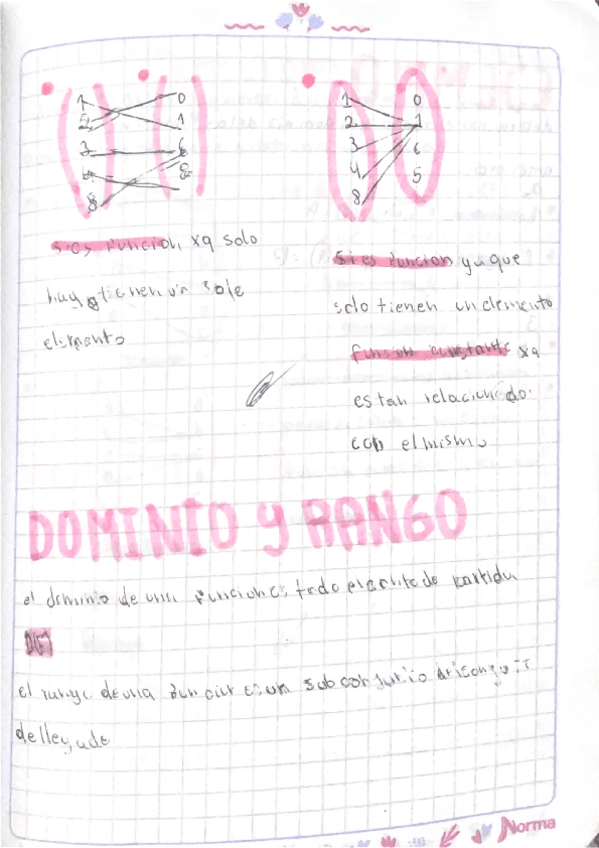 1 0
2 1
3 6
8
si es funcion xq solo
hay tienen un solo
elemento
1 0
2 1
3 6
4 5
8
Si es funcion ya que
solo tienen un elemento
funcion constante xq
estan relacionado
con el mismo
DOMINIO y RANGO
el dominio de una funcion es todo de partida
el rango de una funcion es un subconjunto
de llegada
Norma